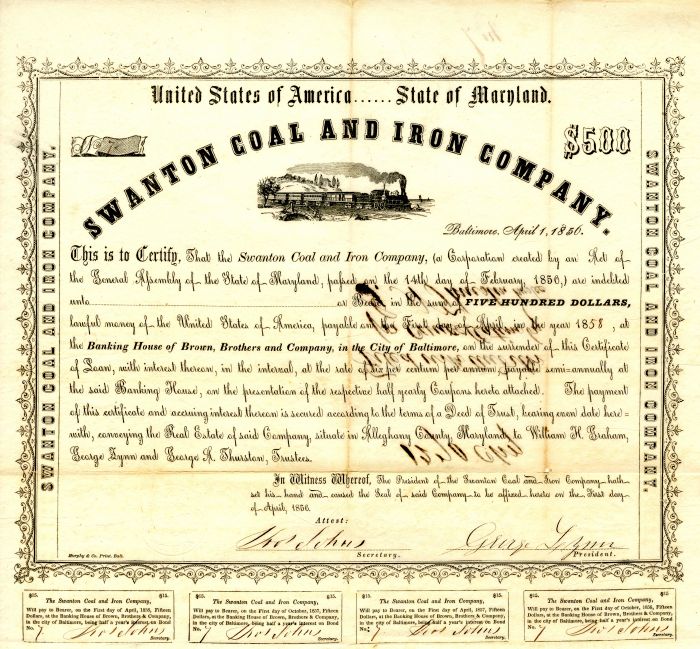 United States of America......State of Maryland.
$500
SWANTON COAL AND IRON COMPANY.
SWANTON COAL AND IRON COMPANY.
SWANTON COAL AND IRON COMPANY.
Baltimore, April 1, 1856.
This is to Certify, That the Swanton Coal and Iron Company, (a Corporation created by an Act of
the General Assembly of the State of Maryland, passed on the 14th day of February 1856,) are indebted
unto or Bearer in the sum FIVE HUNDRED DOLLARS,
lawful money of the United States of America, payable on the First day of April in the year 1858, at
the Banking House of Brown, Brothers and Company, in the City of Baltimore, on the surrender of this Certificate
of Loan, with interest thereon, in the interval, at the rate of six per centum per annum, payable semi=annually at
the said Banking House, on the presentation of the respective half yearly Coupons hereto attached. The payment
of this certificate and accruing interest thereon is secured according to the terms of a Deed of Trust, bearing even date here=
with, conveying the Real Estate of said Company, situate in Alleghany County, Maryland, to William H. Graham,
George Lynn and George A. Thurston, Trustees.
In Witness Whereof, The President of the Swanton Coal and Iron Company hath
set his hand and caused the Seal of said Company to be affixed hereto on the First day
of April, 1856.
Attest:
Thos Johns George Lynn
Secretary. President.
Murphy & Co. Print. Balt.
$15. $15.
The Swanton Coal and Iron Company,
Will pay to Bearer, on the First day of April, 1858, Fifteen
Dollars, at the Banking House of Brown, Brothers & Company,
in the city of Baltimore, being half a year's interest on Bond
No. 7 Thos Johns
Secretary.
$15. $15.
The Swanton Coal and Iron Company,
Will pay to Bearer, on the First day of October, 1857, Fifteen
Dollars, at the Banking House of Brown, Brothers & Company,
in the city of Baltimore, being half a year's interest on Bond
No. 7 Thos Johns
Secretary.
$15. $15.
The Swanton Coal and Iron Company,
Will pay to Bearer, on the First day of April, 1857, Fifteen
Dollars, at the Banking House of Brown, Brothers & Company,
in the city of Baltimore, being half a year's interest on Bond
No. 7 Thos Johns
Secretary.
$15. $15.
The Swanton Coal and Iron Company,
Will pay to Bearer, on the First day of October, 1856, Fifteen
Dollars, at the Banking House of Brown, Brothers & Company,
in the city of Baltimore, being half a year's interest on Bond
No. 7 Thos Johns
Secretary.